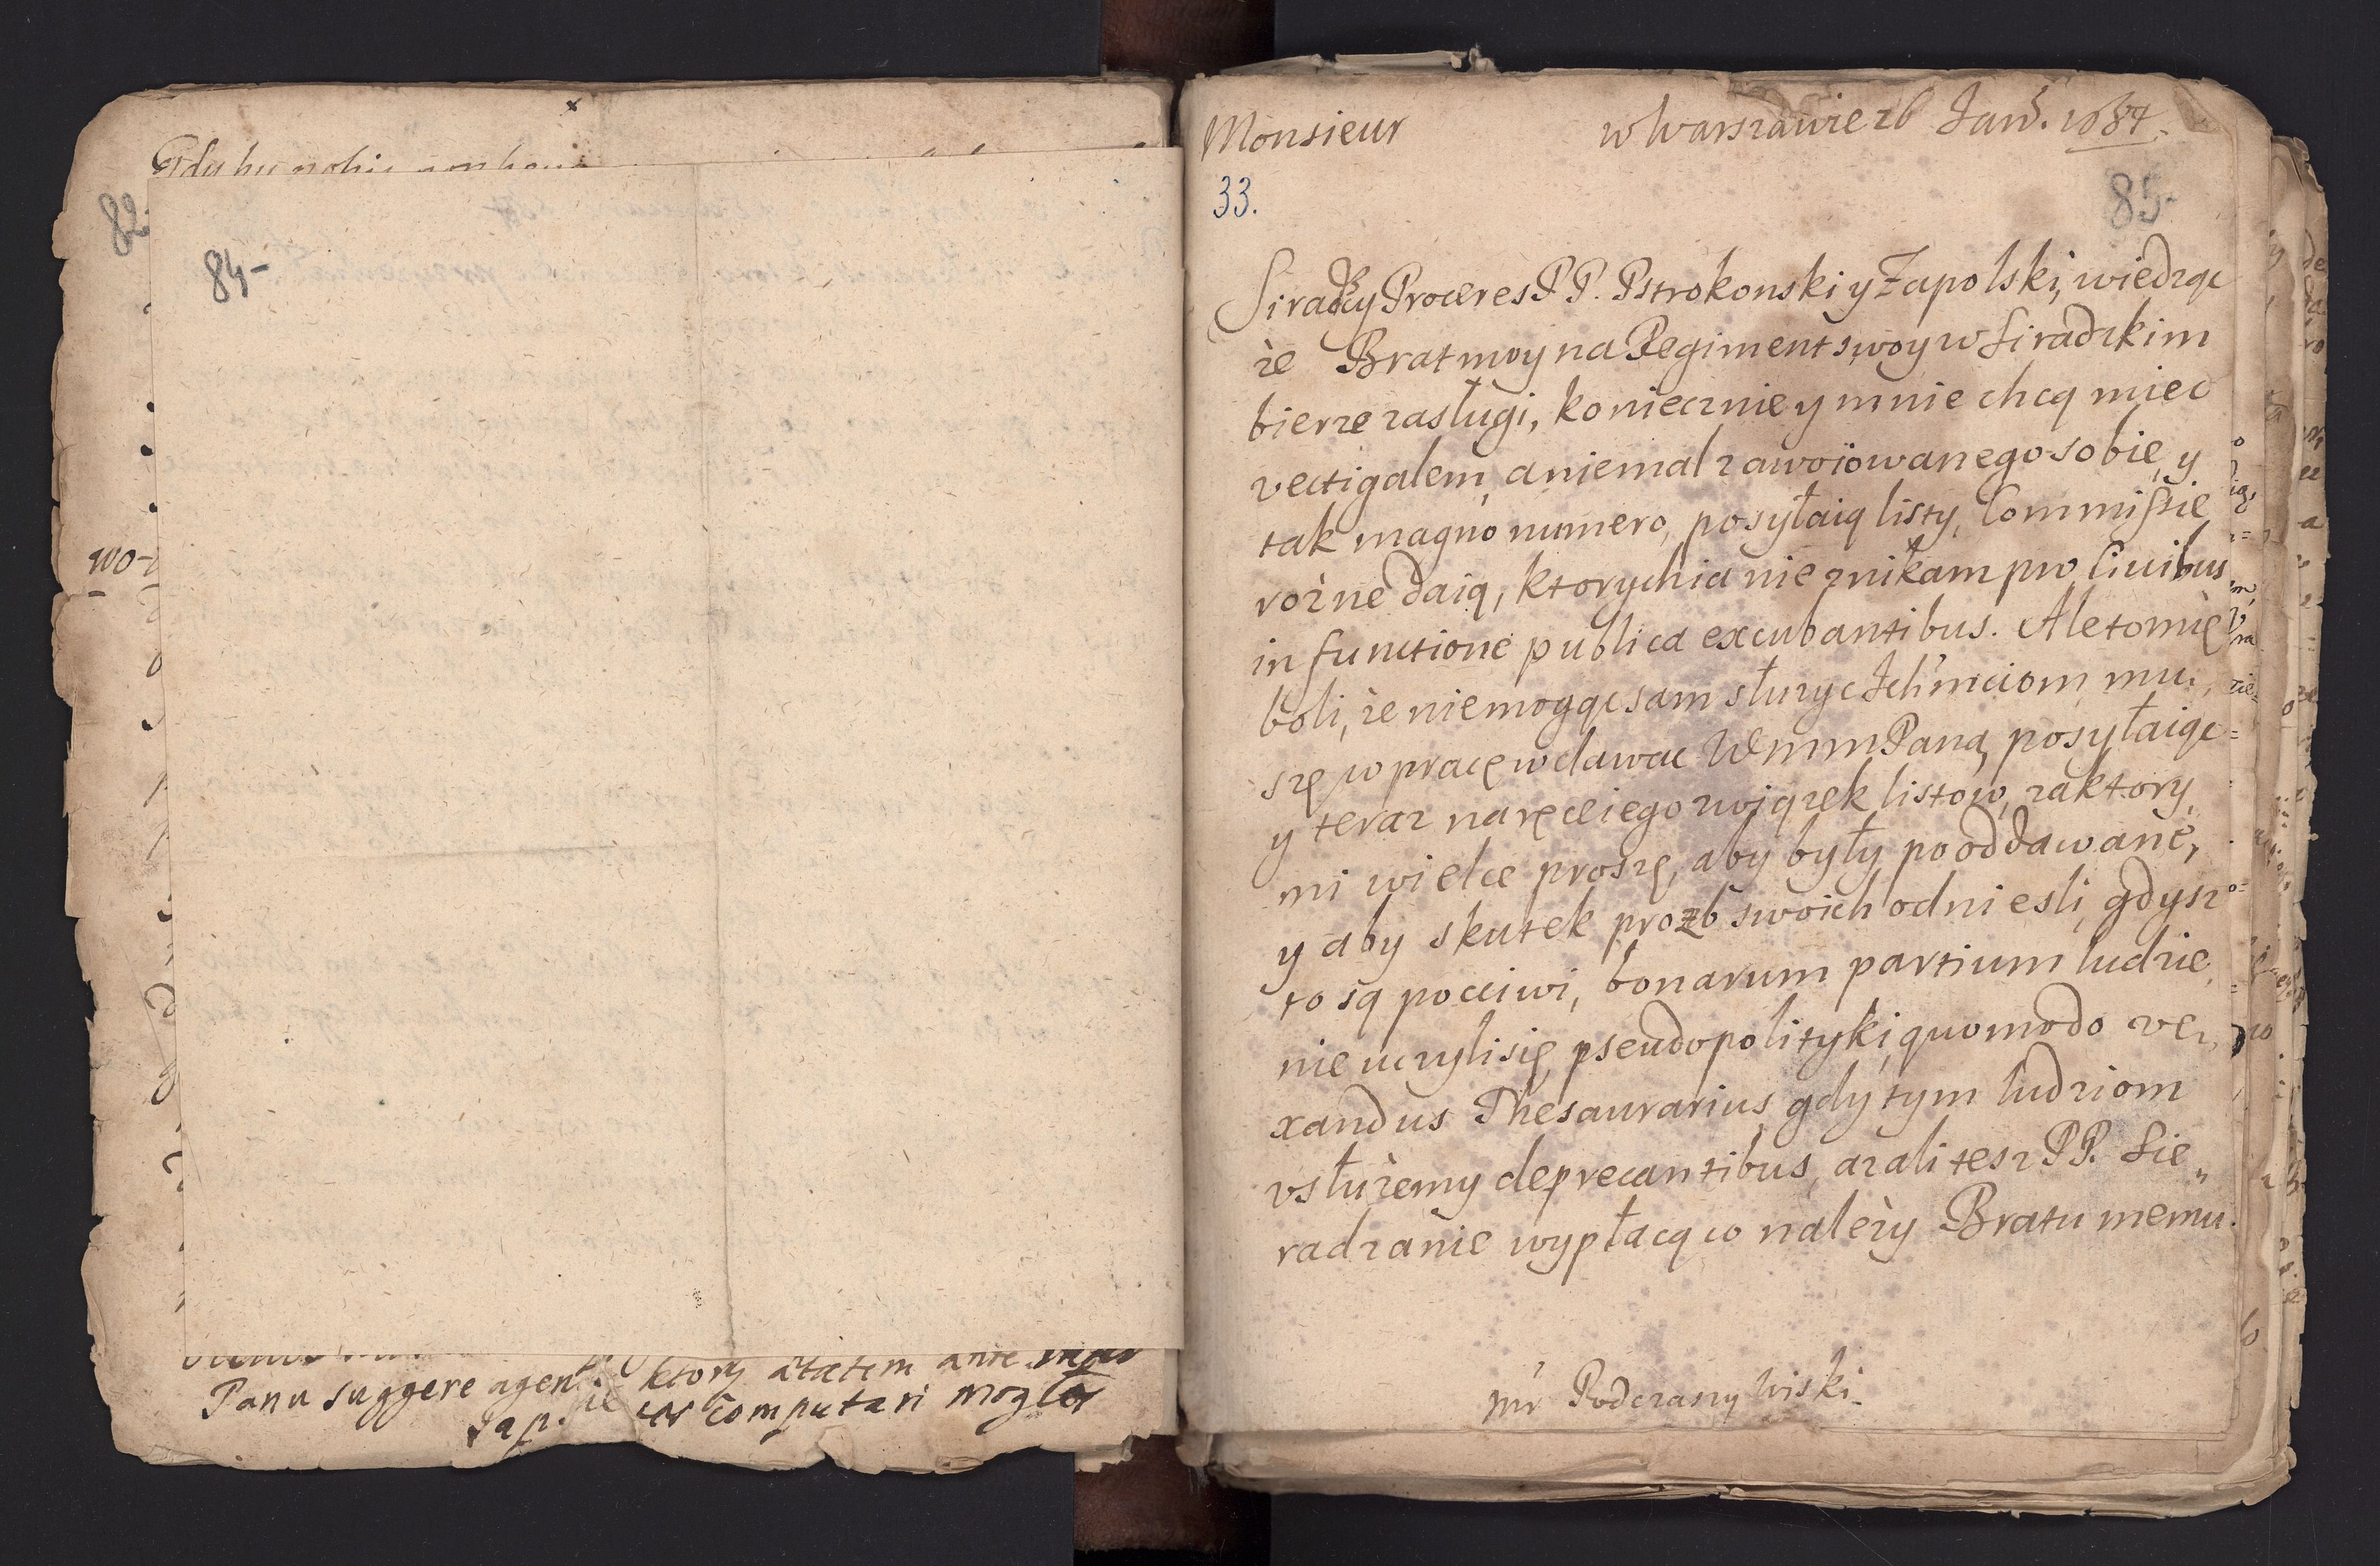 82-
84-
wo-
Panu suggere agen
ktory ætatem ante
computari mogło
Monsieur w Warszawie 26 Jan. 1684.
33.
85-
Siradzcy Proceres P P. Pstrokonski y Zapolski, wiedząc
że Brat moy na Regiment swoy w Siradzkim
bierze zasługi, koniecznie y mnie chcą miec
vectigalem, a niemal zawoiowanego sobie, y
tak magno numero, posyłaią listy, Commissie
rożne daią, ktorych ia nie znikam pro Civibus
in functione publica excubantibus. Ale to mię
boli, że niemogąc sam służyc Ichmciom, mu„
szę w pracę wdawac WMM Pana, posyłaiąc
y teraz na ręce iego związek listow, za ktory„
mi wielce proszę, aby były pooddawane,
y aby skutek prozb swoich odniesli, gdysz
to są pocciwi, bonarum partium ludzie,
nie uczyli się pseudopolityki, quomodo ve„
xandus Thesaurarius, gdy tym ludziom
vsłużemy deprecantibus, azali tesz PP. Sie„
radzanie wypłacą co należy Bratu memu.
mr Podczaszy